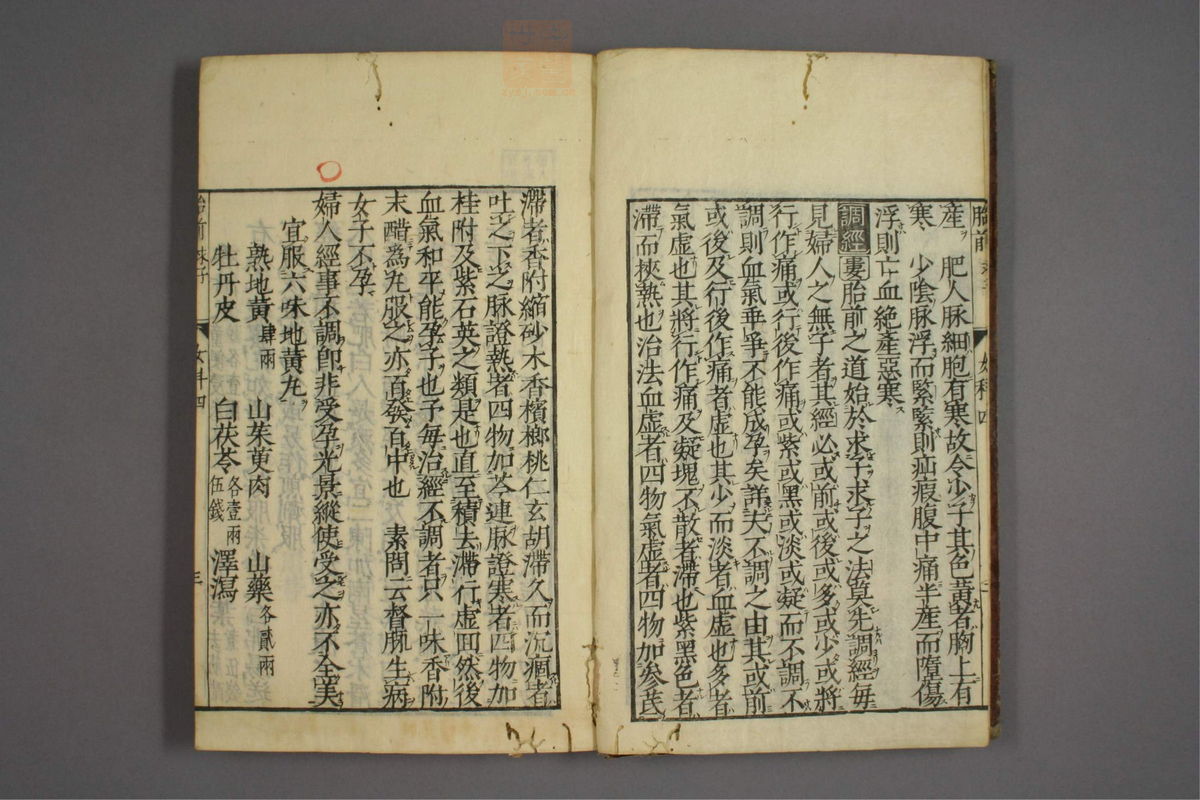 胎前
女科四
產 肥人脉細胞有寒故令少子其色者胸上有
寒 少陰脉浮而緊緊則疝瘕腹中痛半產而墮傷
浮則亡血絶產惡寒
調經 婁胎前之道始於求子求子之法莫先調經毎
見婦人之無子者其經必或前或後或多或少或將
行作痛或行後作痛或紫或黑或淡或凝而不調不
調則血氣乖爭不能成孕矣詳夫不調之由其或前
或後及行後作痛者虚也其少而淡者血虚也多者
氣虚也其將行作痛及凝塊不散者滯也紫黑色者
滯而挾熱也治法血虚者四物氣虚者四物加參芪
滯者香附縮砂木香檳榔桃仁玄胡滯久而沉痼者
吐之下之脉證熱者四物加芩連脉證寒者四物加
桂附及紫石英之類是也直至積去滯行虚回然後
血氣和平能孕子也予毎治經不調者只一味香附
末醋爲丸服之亦百發百中也 素問云督脉生病
女子不孕
婦人經事不調卽非受孕光景縱使受之亦不全美
宜服六味地黄丸
熟地黄肆兩 山茱萸肉 山藥各貳兩
牡丹皮 白茯苓各壹兩伍錢 澤瀉
女科四
三